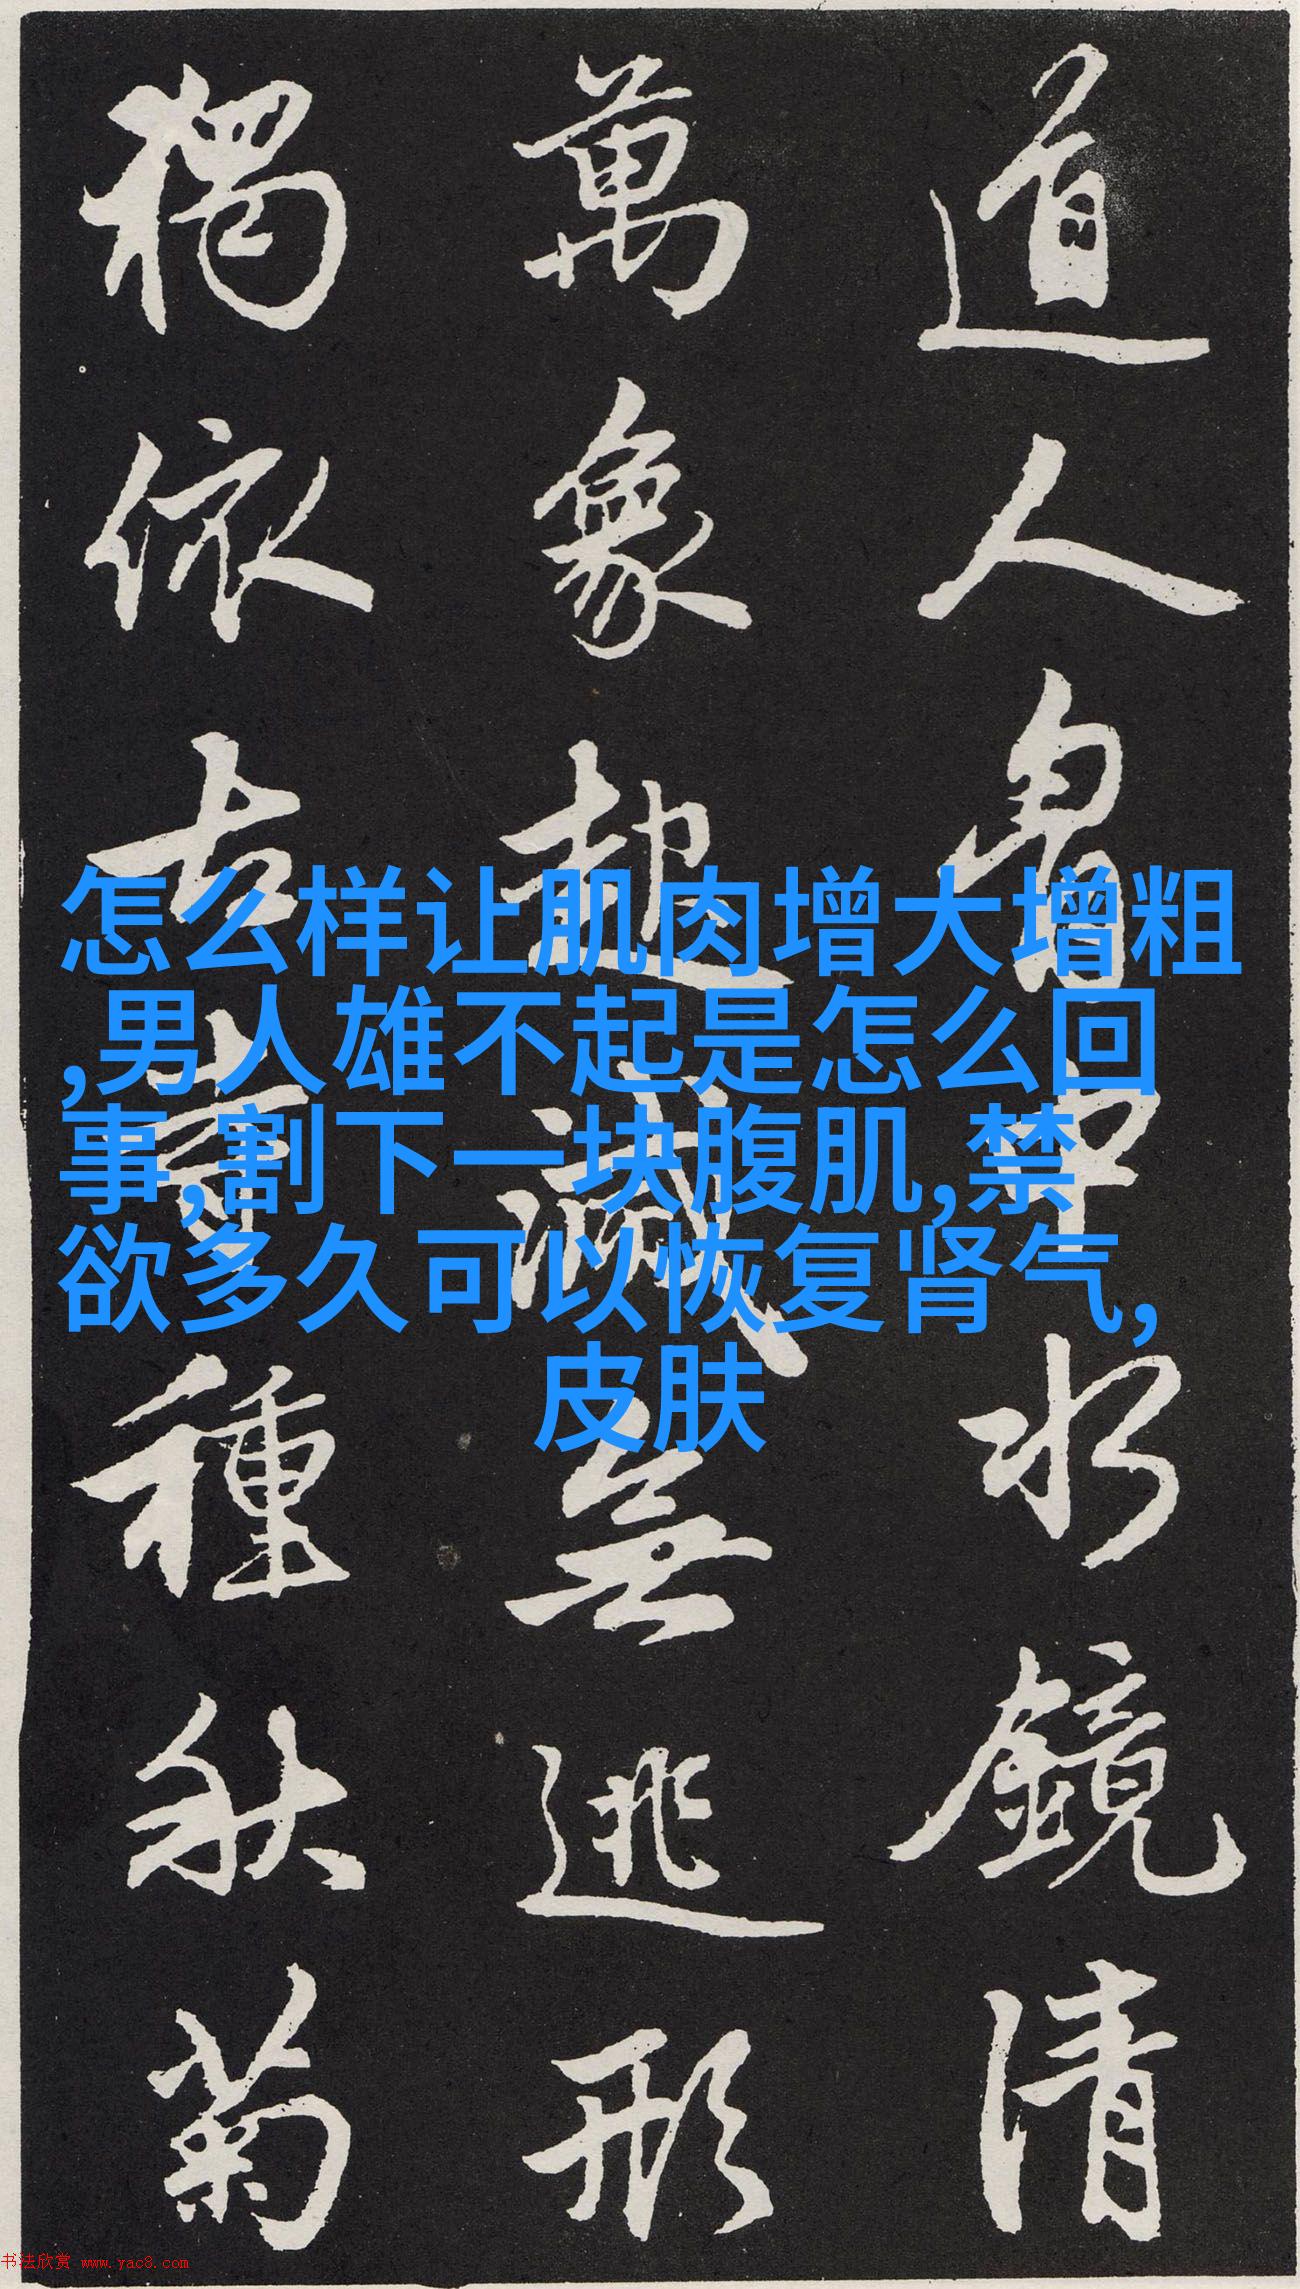 道人胷中水鏡清
萬象起滅無逃形
獨依古寺種秋菊
怎么样让肌肉增大增粗
,男人雄不起是怎么回
事,割下一块腹肌,禁
欲多久可以恢复肾气,
皮肤
书法欣赏 www.yac8.com